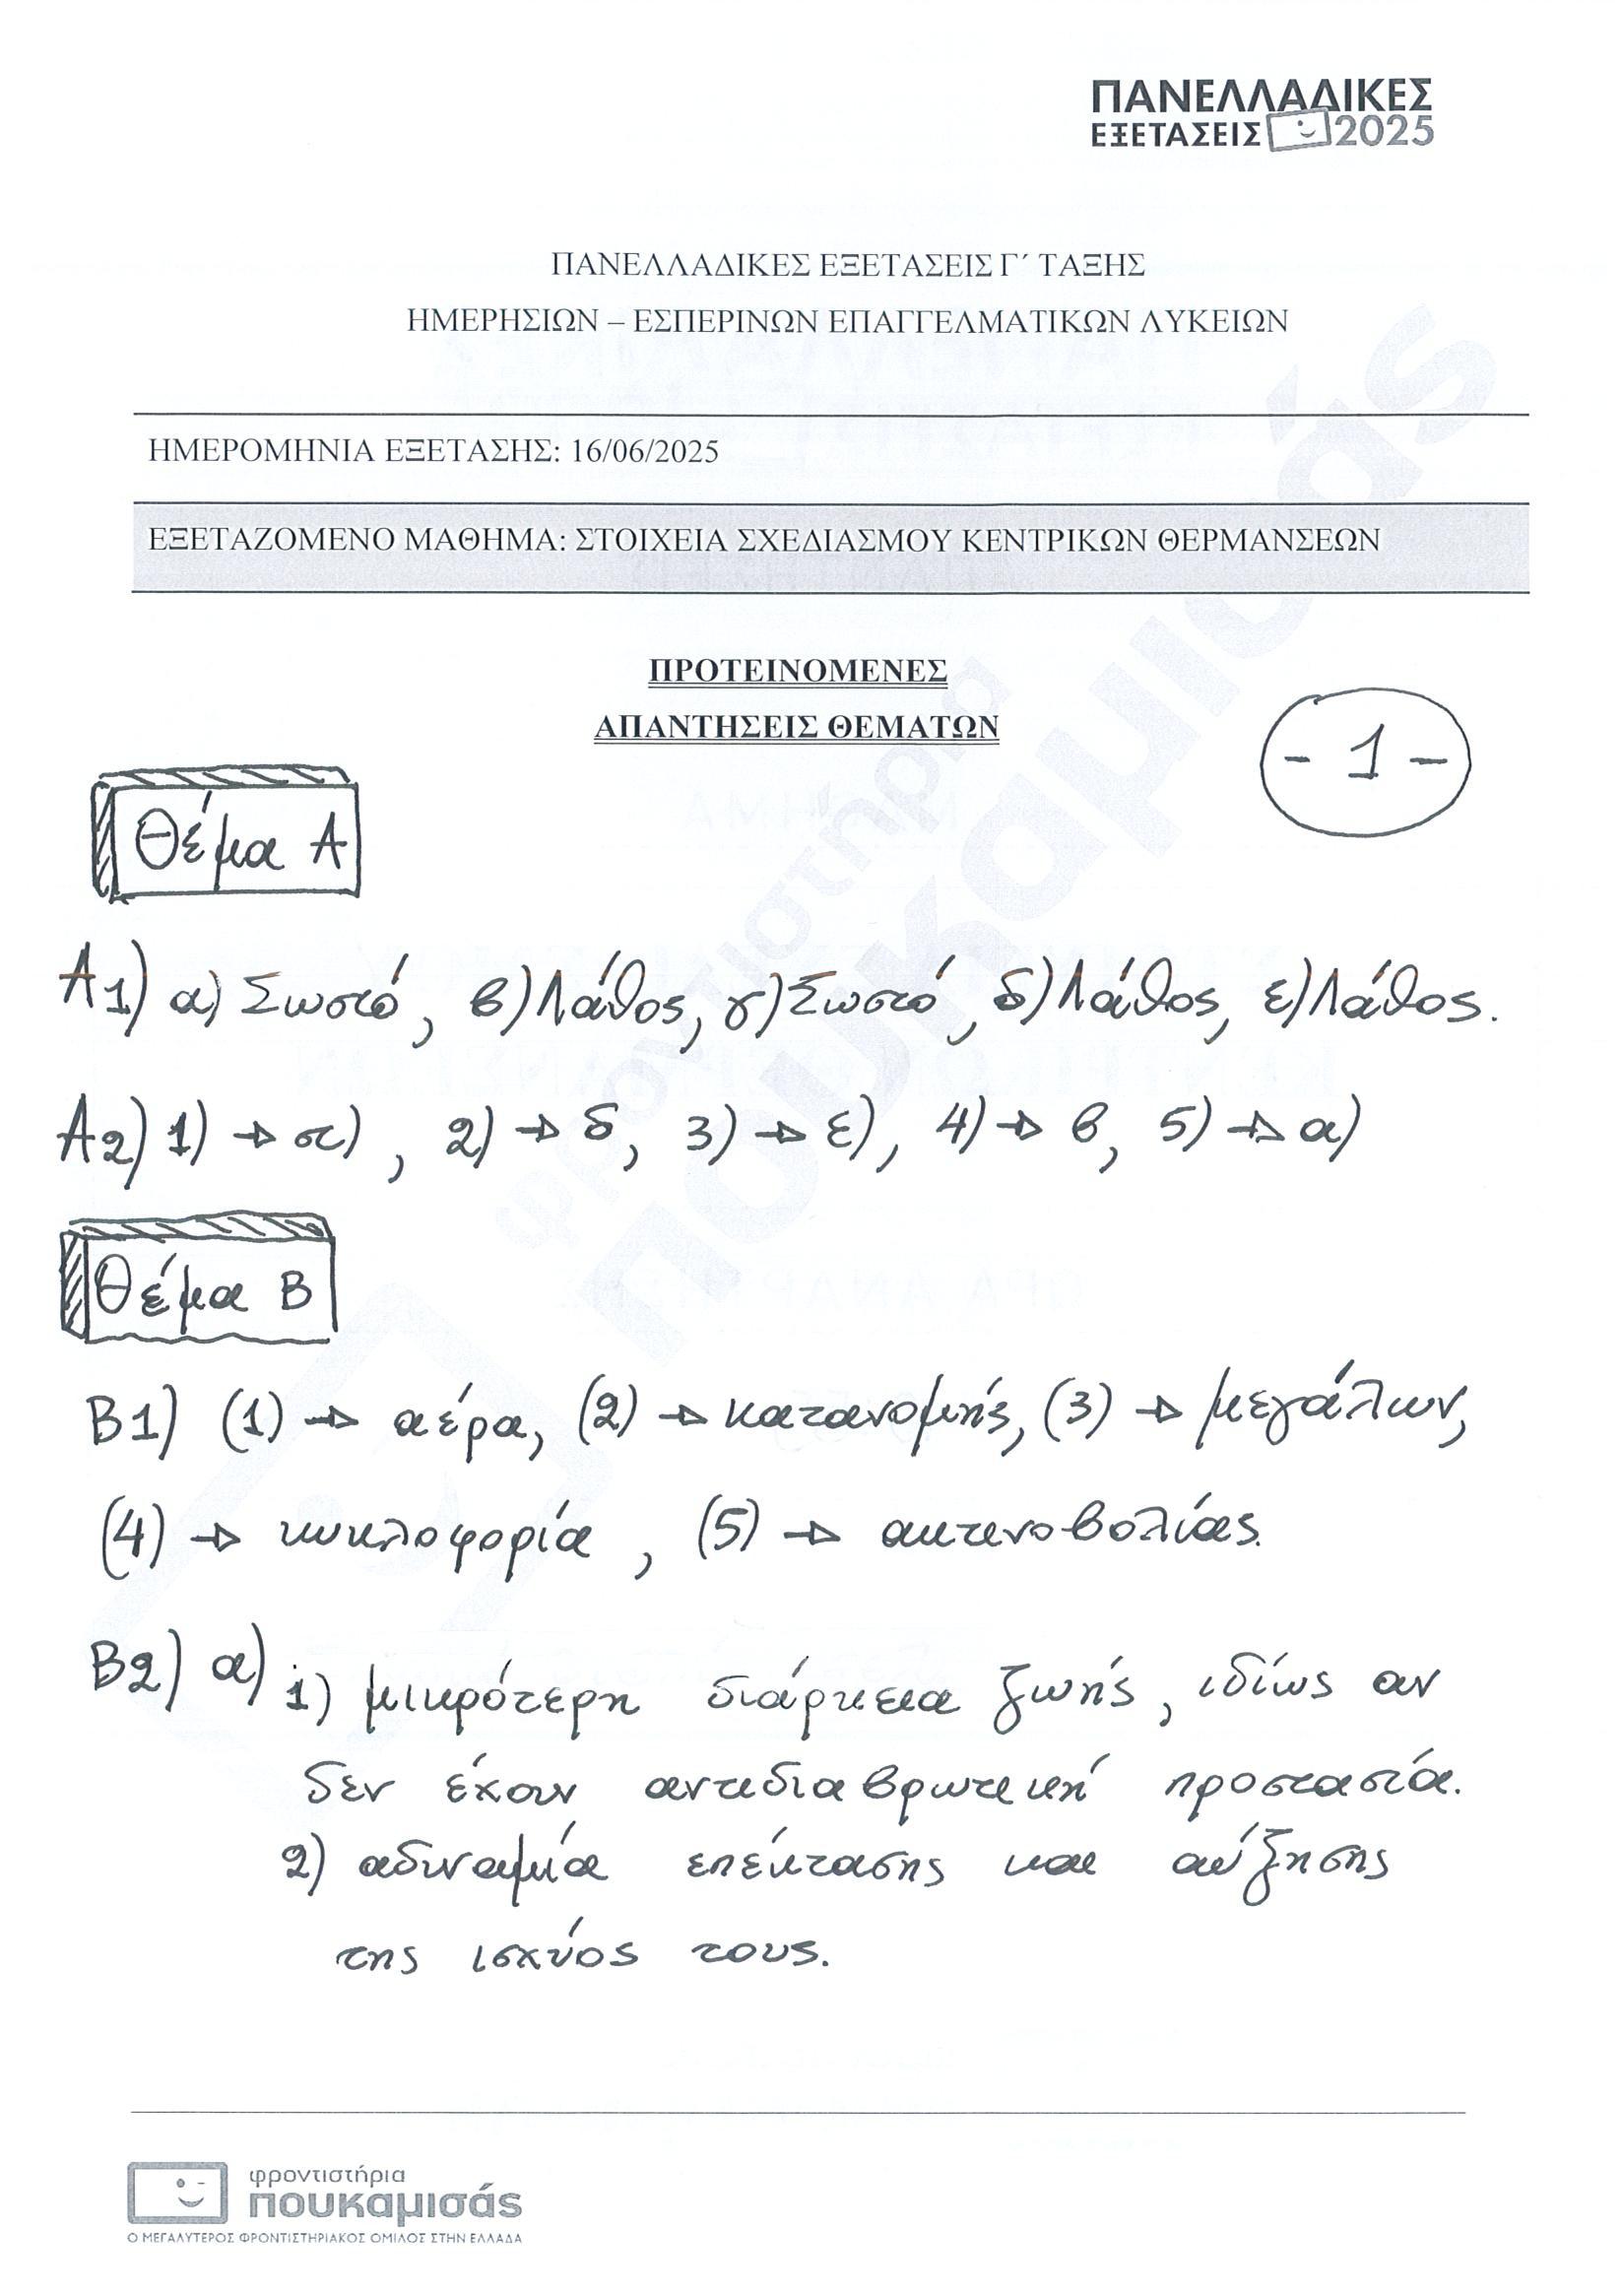 ΠΑΝΕΛΛΑΔΙΚΕΣ
ΕΞΕΤΑΣΕΙΣ 2025
ΠΑΝΕΛΛΑΔΙΚΕΣ ΕΞΕΤΑΣΕΙΣ Γ΄ ΤΑΞΗΣ
ΗΜΕΡΗΣΙΩΝ – ΕΣΠΕΡΙΝΩΝ ΕΠΑΓΓΕΛΜΑΤΙΚΩΝ ΛΥΚΕΙΩΝ
ΗΜΕΡΟΜΗΝΙΑ ΕΞΕΤΑΣΗΣ: 16/06/2025
ΕΞΕΤΑΖΟΜΕΝΟ ΜΑΘΗΜΑ: ΣΤΟΙΧΕΙΑ ΣΧΕΔΙΑΣΜΟΥ ΚΕΝΤΡΙΚΩΝ ΘΕΡΜΑΝΣΕΩΝ
ΠΡΟΤΕΙΝΟΜΕΝΕΣ
ΑΠΑΝΤΗΣΕΙΣ ΘΕΜΑΤΩΝ
- 1 -
Θέμα Α
Α1) α) Σωστό, β) Λάθος, γ) Σωστό, δ) Λάθος, ε) Λάθος.
Α2) 1) → στ), 2) → δ, 3) → ε), 4) → β, 5) → α)
Θέμα Β
Β1) (1) → αέρα, (2) → κατανομής, (3) → μεγάλων,
(4) → κυκλοφορία, (5) → ακτινοβολίας.
Β2) α) 1) μικρότερη διάρκεια ζωής, ιδίως αν
δεν έχουν αντιδιαβρωτική προστασία.
2) αδυναμία επέκτασης και αύξησης
της ισχύος τους.
φροντιστήρια
πουκαμισάς
Ο ΜΕΓΑΛΥΤΕΡΟΣ ΦΡΟΝΤΙΣΤΗΡΙΑΚΟΣ ΟΜΙΛΟΣ ΣΤΗΝ ΕΛΛΑΔΑ
φροντιστήρια
πουκαμισάς